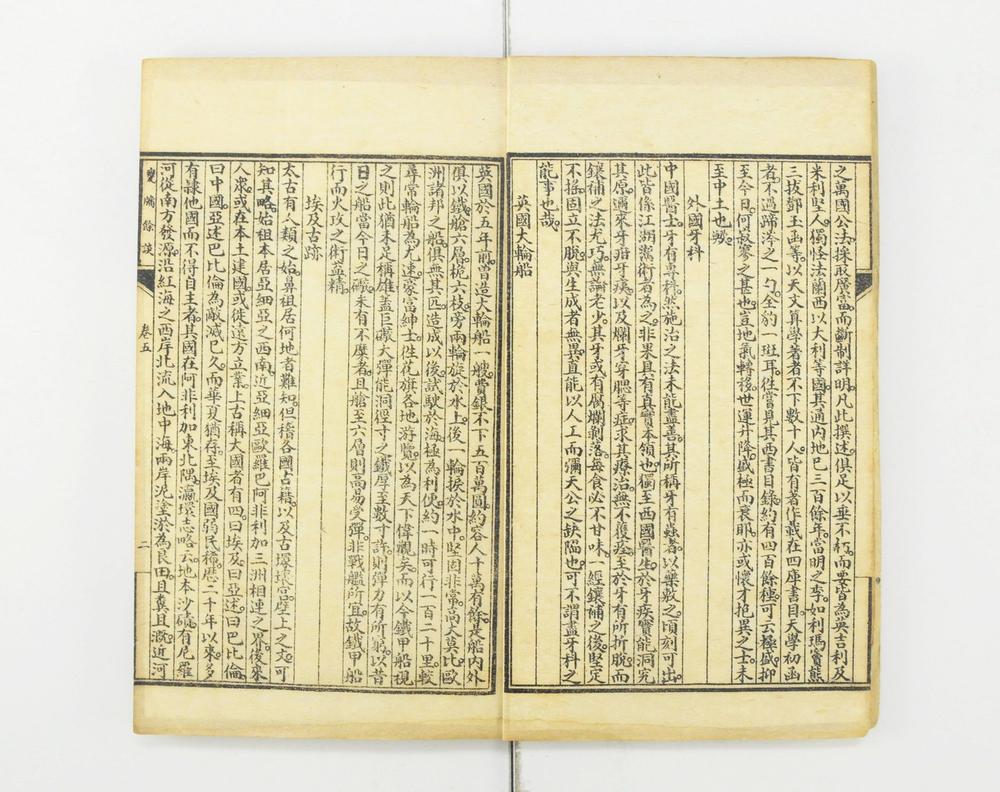 之萬國公法採取厲富而斷制詳明凡此撰述俱足以垂不朽而要皆為英吉利及
米利堅人獨怪法蘭西以大利等國其通內地已三百餘年當明之季如利瑪竇熊
三拔鄧玉函等以天文算學著者不下數十人皆有著作載在四庫書目天學初函
者不過蹄涔之一勺全豹一斑耳往嘗見其西書目錄約有四百餘種可云極盛抑
至今日何寂寥之甚也豈地氣轉移世運升降盛極而衰耶亦或懷才抱異之士未
至中土也歟
外國牙科
中國醫士牙有專科然施治之法未能盡善其所稱牙有蟲者以藥敷之頃刻可出
此皆係江湖鬻術者為之非果具有真實本領也獨至西國醫生於牙疾實能洞究
其原邇來牙疳牙痰以及爛牙穿腮等症求其療治無不獲痊至於牙有所折脫而
鑲補之法尤巧無論老少其牙或有腐爛剝落每食必不甘味一經鑲補之後堅定
不搖固立不脫與生成者無異直能以人工而彌天公之缺陷也可不謂盡牙科之
能事也哉
英國大輪船
英國於五年前曾造大輪船一艘費銀不下五百萬圓約容人十萬有餘是船內外
俱以鐵艙六層桅六枝旁兩輪旋於水上後一輪捩於水中堅固非常高大莫比歐
洲諸邦之船俱無其匹造成以後試駛於海極為利便約一時可行一百二十里較
尋常輪船為尤速豪富紳士往花旗各地游覽以為天下偉觀矣而以今鐵甲船視
之則此猶未足稱雄蓋巨礮大彈能洞徑寸之鐵厚至數寸許則彈力有所窮以昔
日之船當今日之礮未有不糜者且艙至六層則高易受彈非戰艦所宜故鐵甲船
行而火攻之術益精
埃及古跡
太古有人類之始鼻祖居何地者難知但稽各國古籍以及古環壞宮壁上之文可
知其略始祖本居亞細亞之西南近亞細亞歐羅巴阿非利加三洲相連之界後來
人眾或在本土建國或徙遠方立業上古稱大國者有四曰埃及曰亞述曰巴比倫
曰中國亞述巴比倫為敵滅已久而華夏猶存至埃及國弱民稀歷二千年以來多
有隷他國而不得自主者其國在阿非利加東北隅瀛環志略云地本沙磧有尼羅
河從南方發源沿紅海之西岸北流入地中海兩岸泥塗淤為良田且糞且溉近河
雙牖餘談
卷五
二